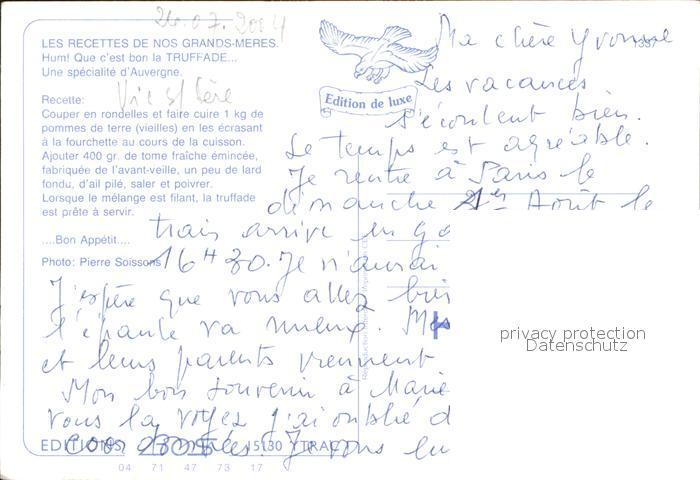 26.07.2004
LES RECETTES DE NOS GRANDS-MERES.
Hum! Que c'est bon la TRUFFADE...
Une spécialité d'Auvergne.
Vic s/ Cère
Recette:
Couper en rondelles et faire cuire 1 kg de
pommes de terre (vieilles) en les écrasant
à la fourchette au cours de la cuisson.
Ajouter 400 gr. de tome fraîche émincée,
fabriquée de l'avant-veille, un peu de lard
fondu, d'ail pilé, saler et poivrer.
Lorsque le mélange est filant, la truffade
est prête à servir.
....Bon Appétit....
Photo: Pierre Soissons
Edition de luxe
Ma chère Yvonne
Les vacances
s'écoulent bien.
Le temps est agréable.
Je rentre à Paris le
dimanche 1er Août le
train arrive en
16H30. Je n'aurai
J'espère que vous allez
l'épaule va mieux.
et leurs parents viennent
Mon bon souvenir à Marie
vous la voyez j'ai oublié
Je vous
EDITIONS 15130 YTRAC
04 71 47 73 17
privacy protection
Datenschutz